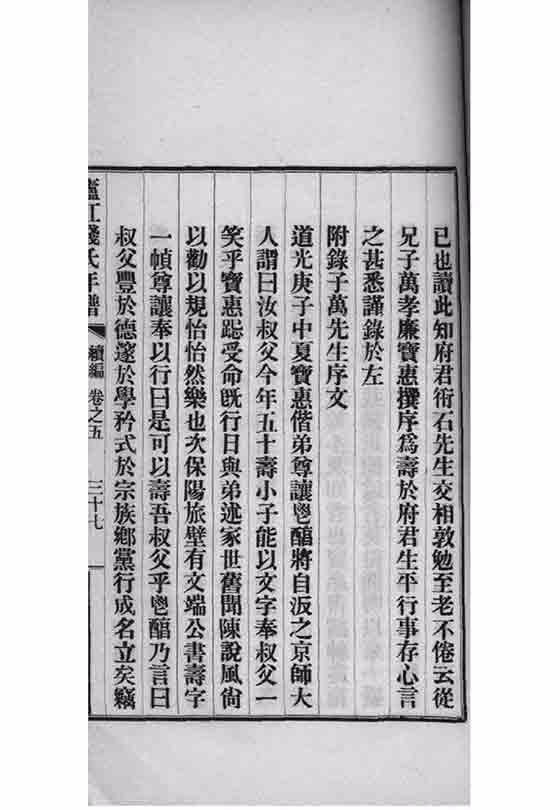 已也讀此知府君術石先生交相敦勉至老不倦云從
兄子萬孝廉寶惠撰序為壽於府君生平行事存心言
之甚悉謹錄於左
附錄子萬先生序文
道光庚子中夏寶惠偕弟尊讓鬯醻將自汳之京師大
人謂曰汝叔父今年五十壽小子能以文字奉叔父一
笑乎寶惠跽受命既行日與弟述家世舊聞陳說風尙
以勸以規怡怡然樂也次保陽旅壁有文端公書壽字
一幀尊讓奉以行曰是可以壽吾叔父乎鬯醻乃言曰
叔父豐於德邃於學矜式於宗族鄉黨行成名立矣竊
廬江錢氏年譜 續編 卷之五 三十七